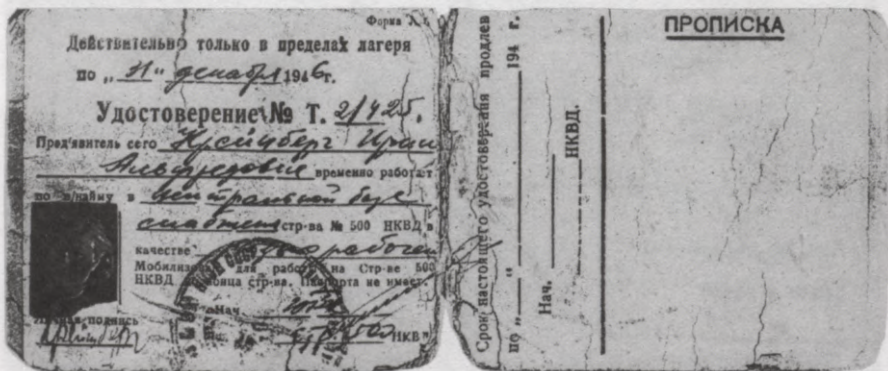 Форма № 1.
Действительно только в пределах лагеря
по „31" декабря 1946г.
Удостоверение № Т. 21425.
Пред'явитель сего
Альфредович временно работает
по в/найму в центральной базе
снабжения стр-ва № 500 НКВД в
качестве рабочего
Мобилизован для работы на Стр-ве 500
НКВД до конца стр-ва. Паспорта не имеет.
Нач.
Личная подпись
НКВД
Срок настоящего удостоверения продлен
по „ " 194 г.
Нач. НКВД.
ПРОПИСКА